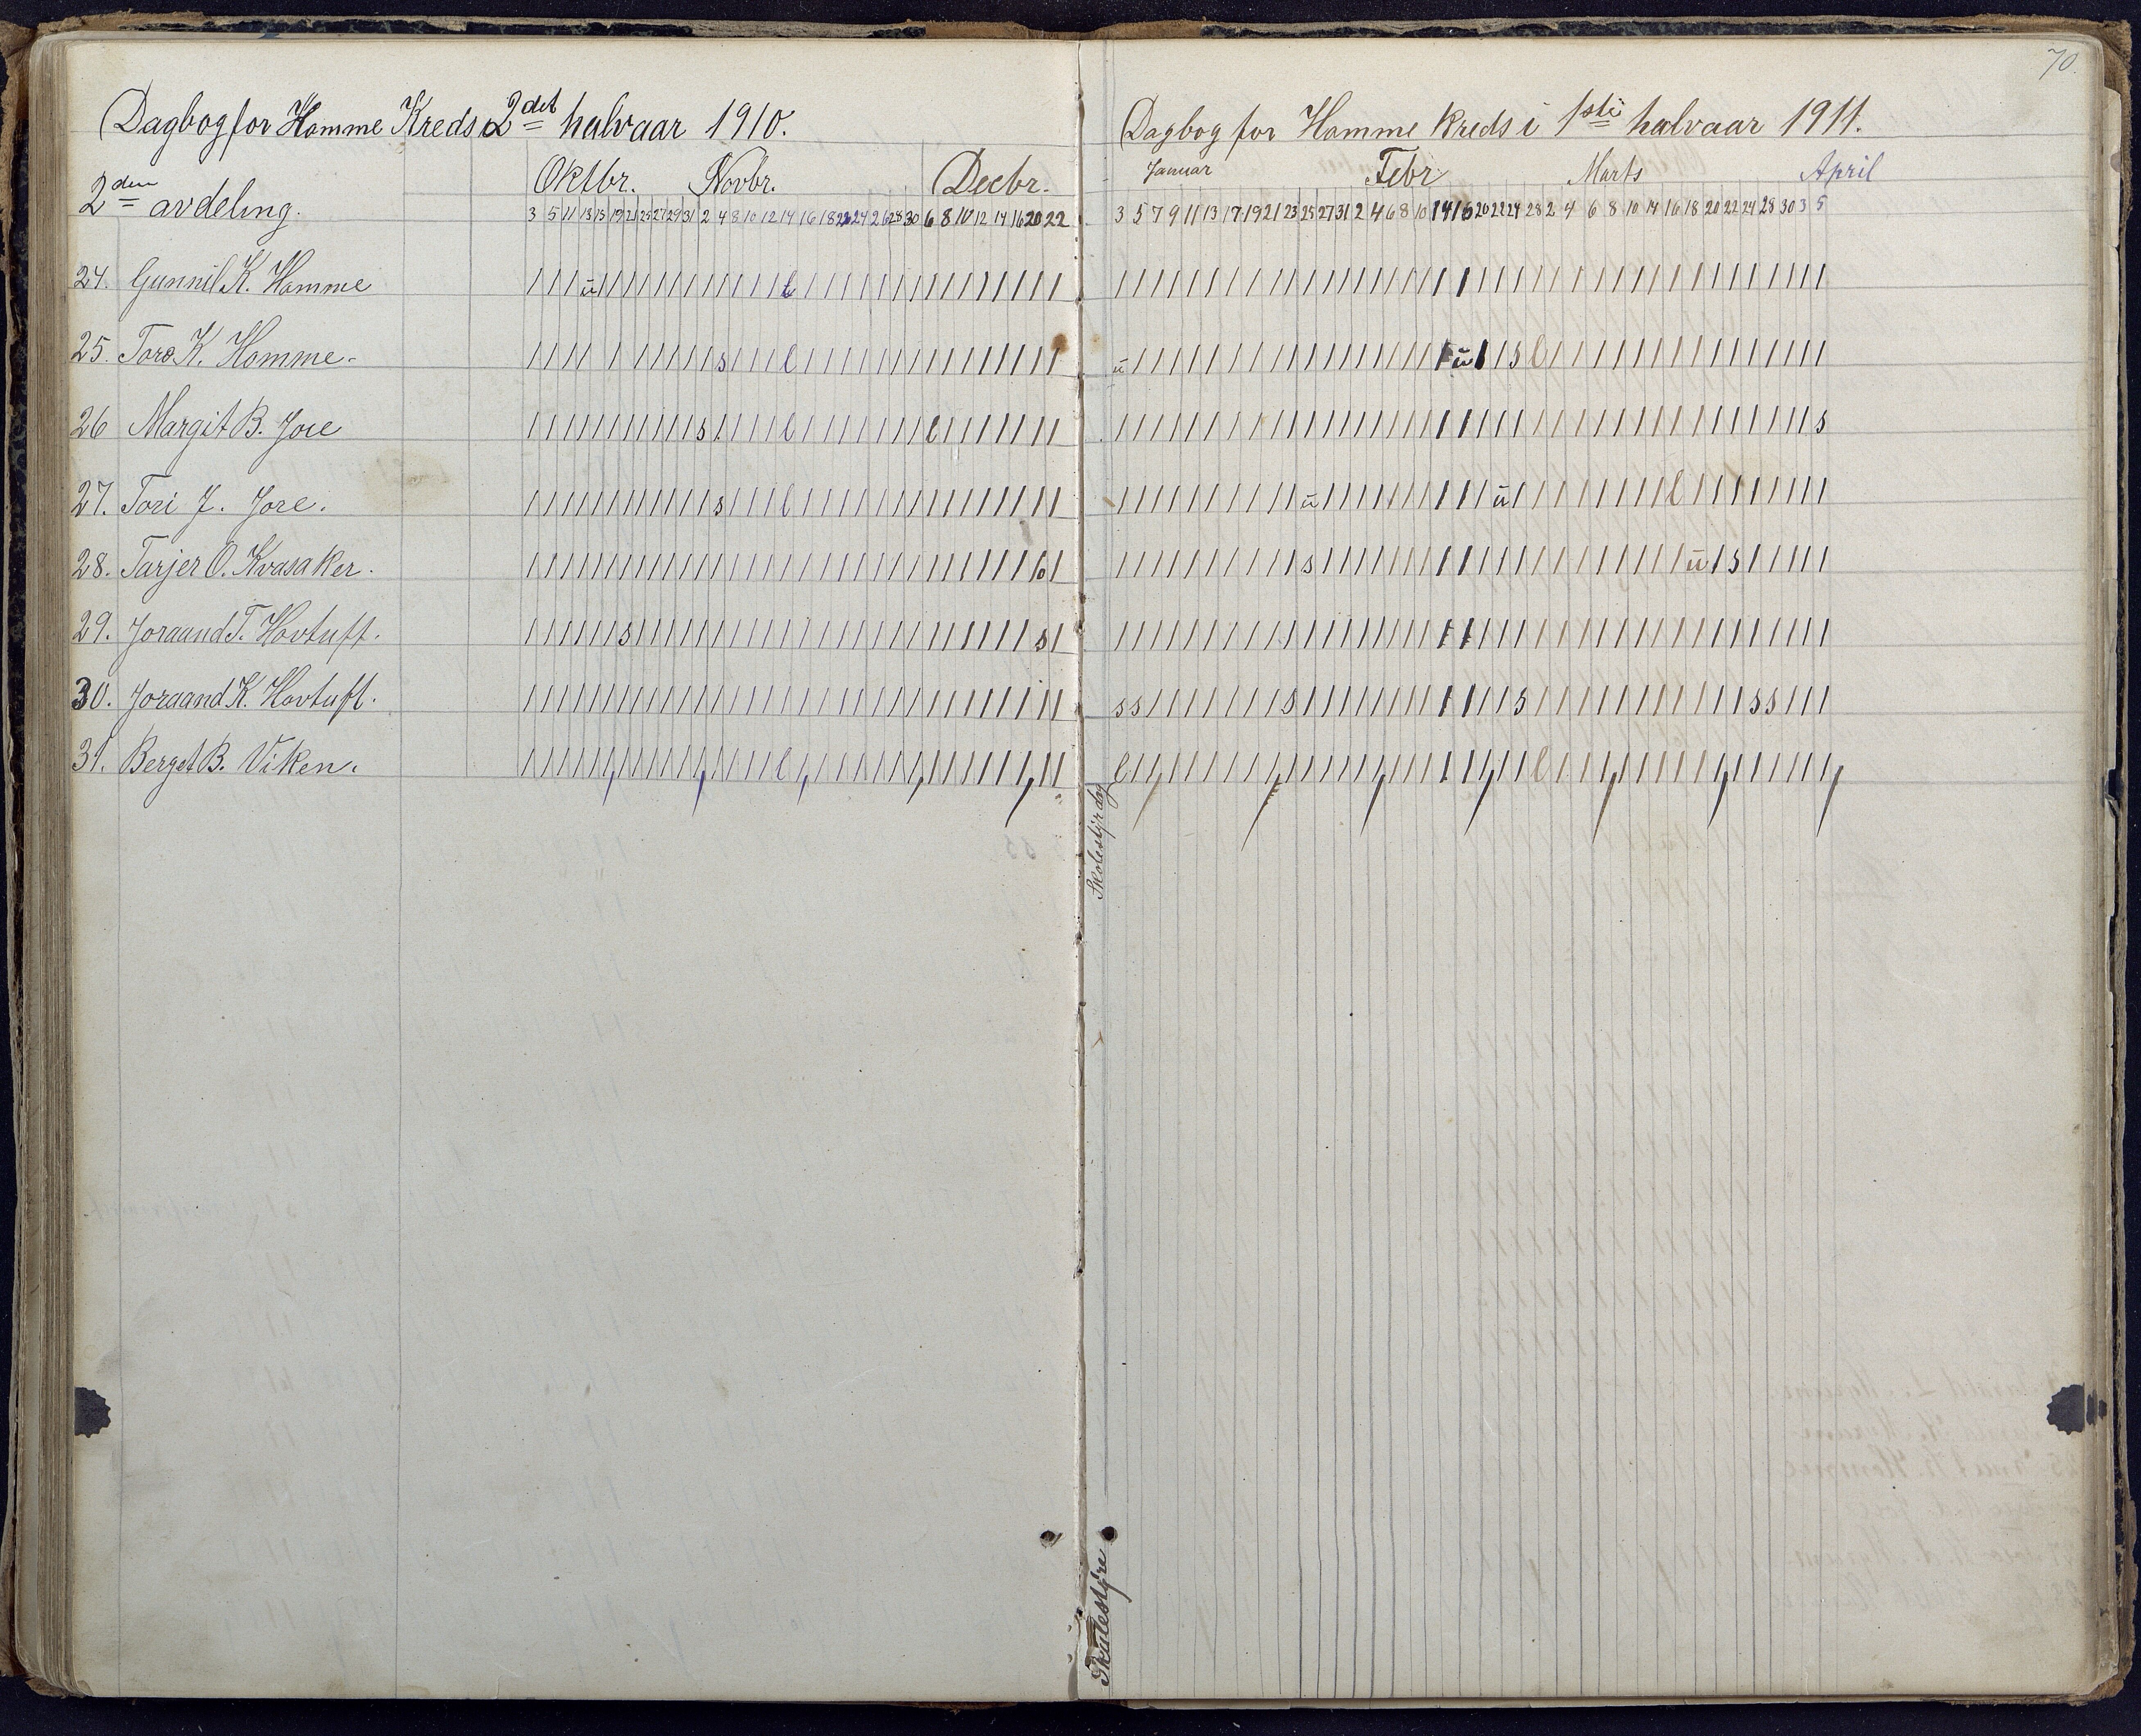 Dagbog for Homme Kreds i 2det halvaar 1910.
2den avdeling.
Oktbr. Novbr. Decbr.
3 5 11 13 15 19 21 25 27 29 31 2 4 8 10 12 14 16 18 22 24 26 28 30 6 8 10 12 14 16 20 22
24. Gunnil K. Homme
25. Toro K. Homme.
26 Margit B. Jore
27. Tori J. Jore.
28. Tarjer O. Kvasaker.
29. Joraand T. Hovtuft.
30. Joraand K. Hovtuft.
31. Berget B. Viken.
70.
Dagbog for Homme Kreds i 1ste halvaar 1911.
Januar Febr Marts April
3 5 7 9 11 13 17 19 21 23 25 27 31 2 4 6 8 10 14 16 20 22 24 28 2 4 6 8 10 14 16 18 20 22 24 28 30 3 5
ū ū s l
s
ū ū l
s ū s
s s s s s s
l l
Skolestyrdag
Skulestyre